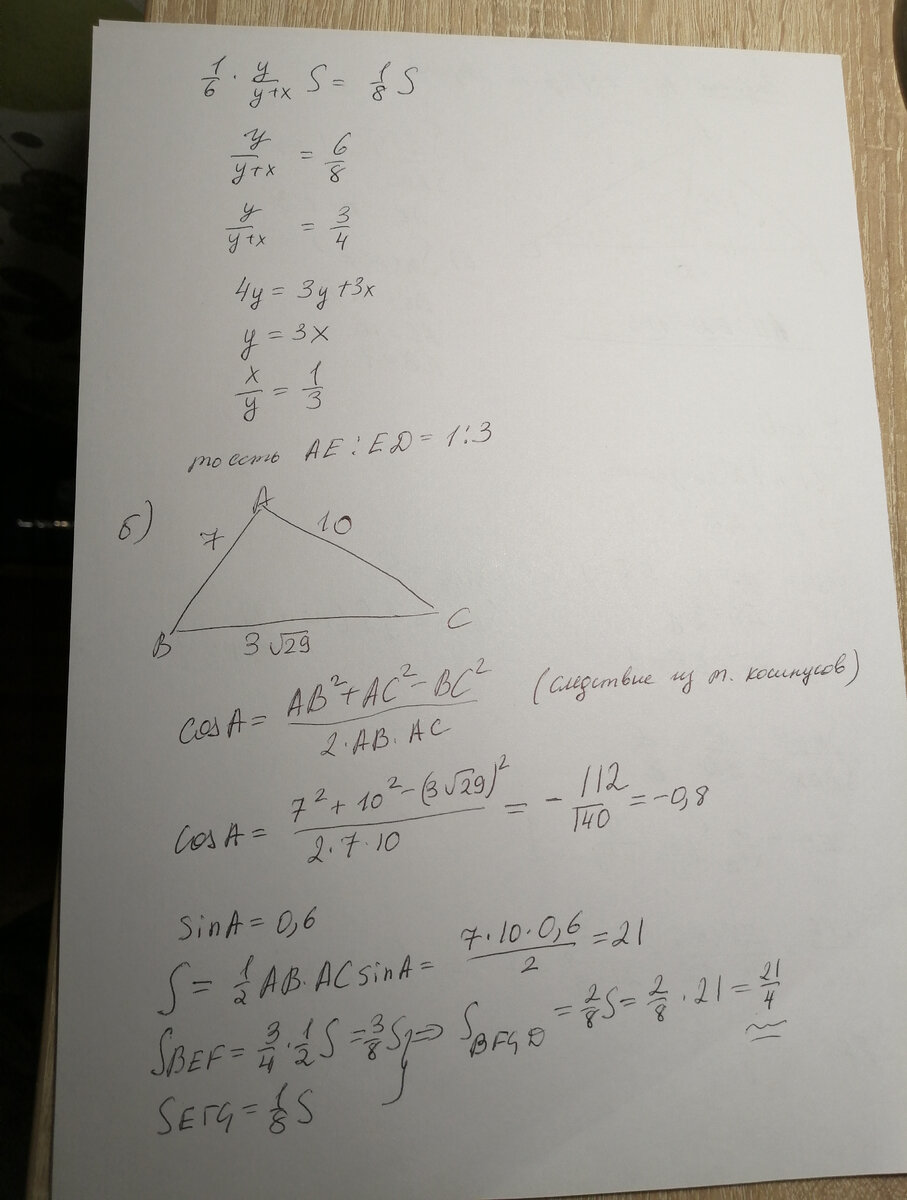 1/6 · y/(y+x) S = 1/8 S
y/(y+x) = 6/8
y/(y+x) = 3/4
4y = 3y+3x
y = 3x
x/y = 1/3
то есть AE:ED = 1:3
б)
A
7
10
B
3√29
C
cosA = (AB²+AC²-BC²)/(2·AB·AC) (следствие из т. косинусов)
cosA = (7²+10²-(3√29)²)/(2·7·10) = -112/140 = -0,8
sinA = 0,6
S = 1/2 AB·AC sinA = (7·10·0,6)/2 = 21
S BEF = 3/4·1/2 S = 3/8 S } => S BFGD = 2/8 S = 2/8 · 21 = 21/4
S EFG = 1/8 S